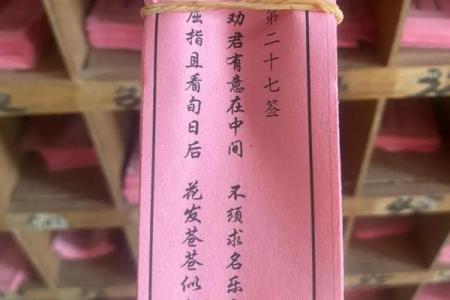 第二十七签
劝君有意在中间 不须求名乐
屈指且看旬日后 花发苍苍似